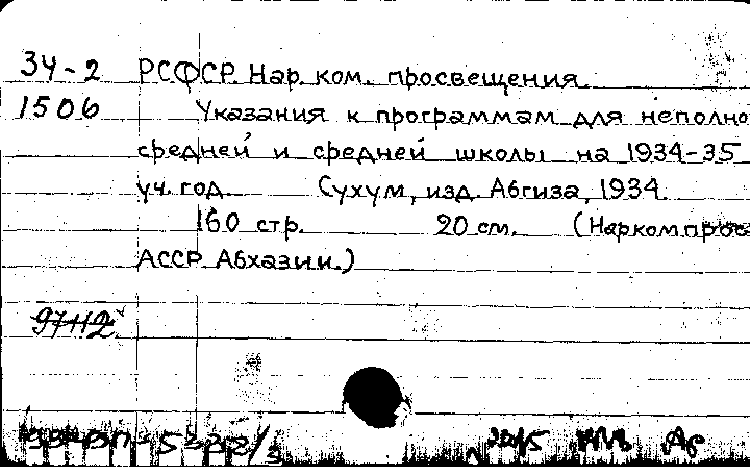 34-2 РСФСР. Нар. ком. просвещения.
1506 Указания к программам для неполно
средней и средней школы на 1934-35
уч. год. Сухум, изд. Абгиза, 1934.
160 стр. 20 см. (Наркомпрос
АССР Абхазии.)
97112